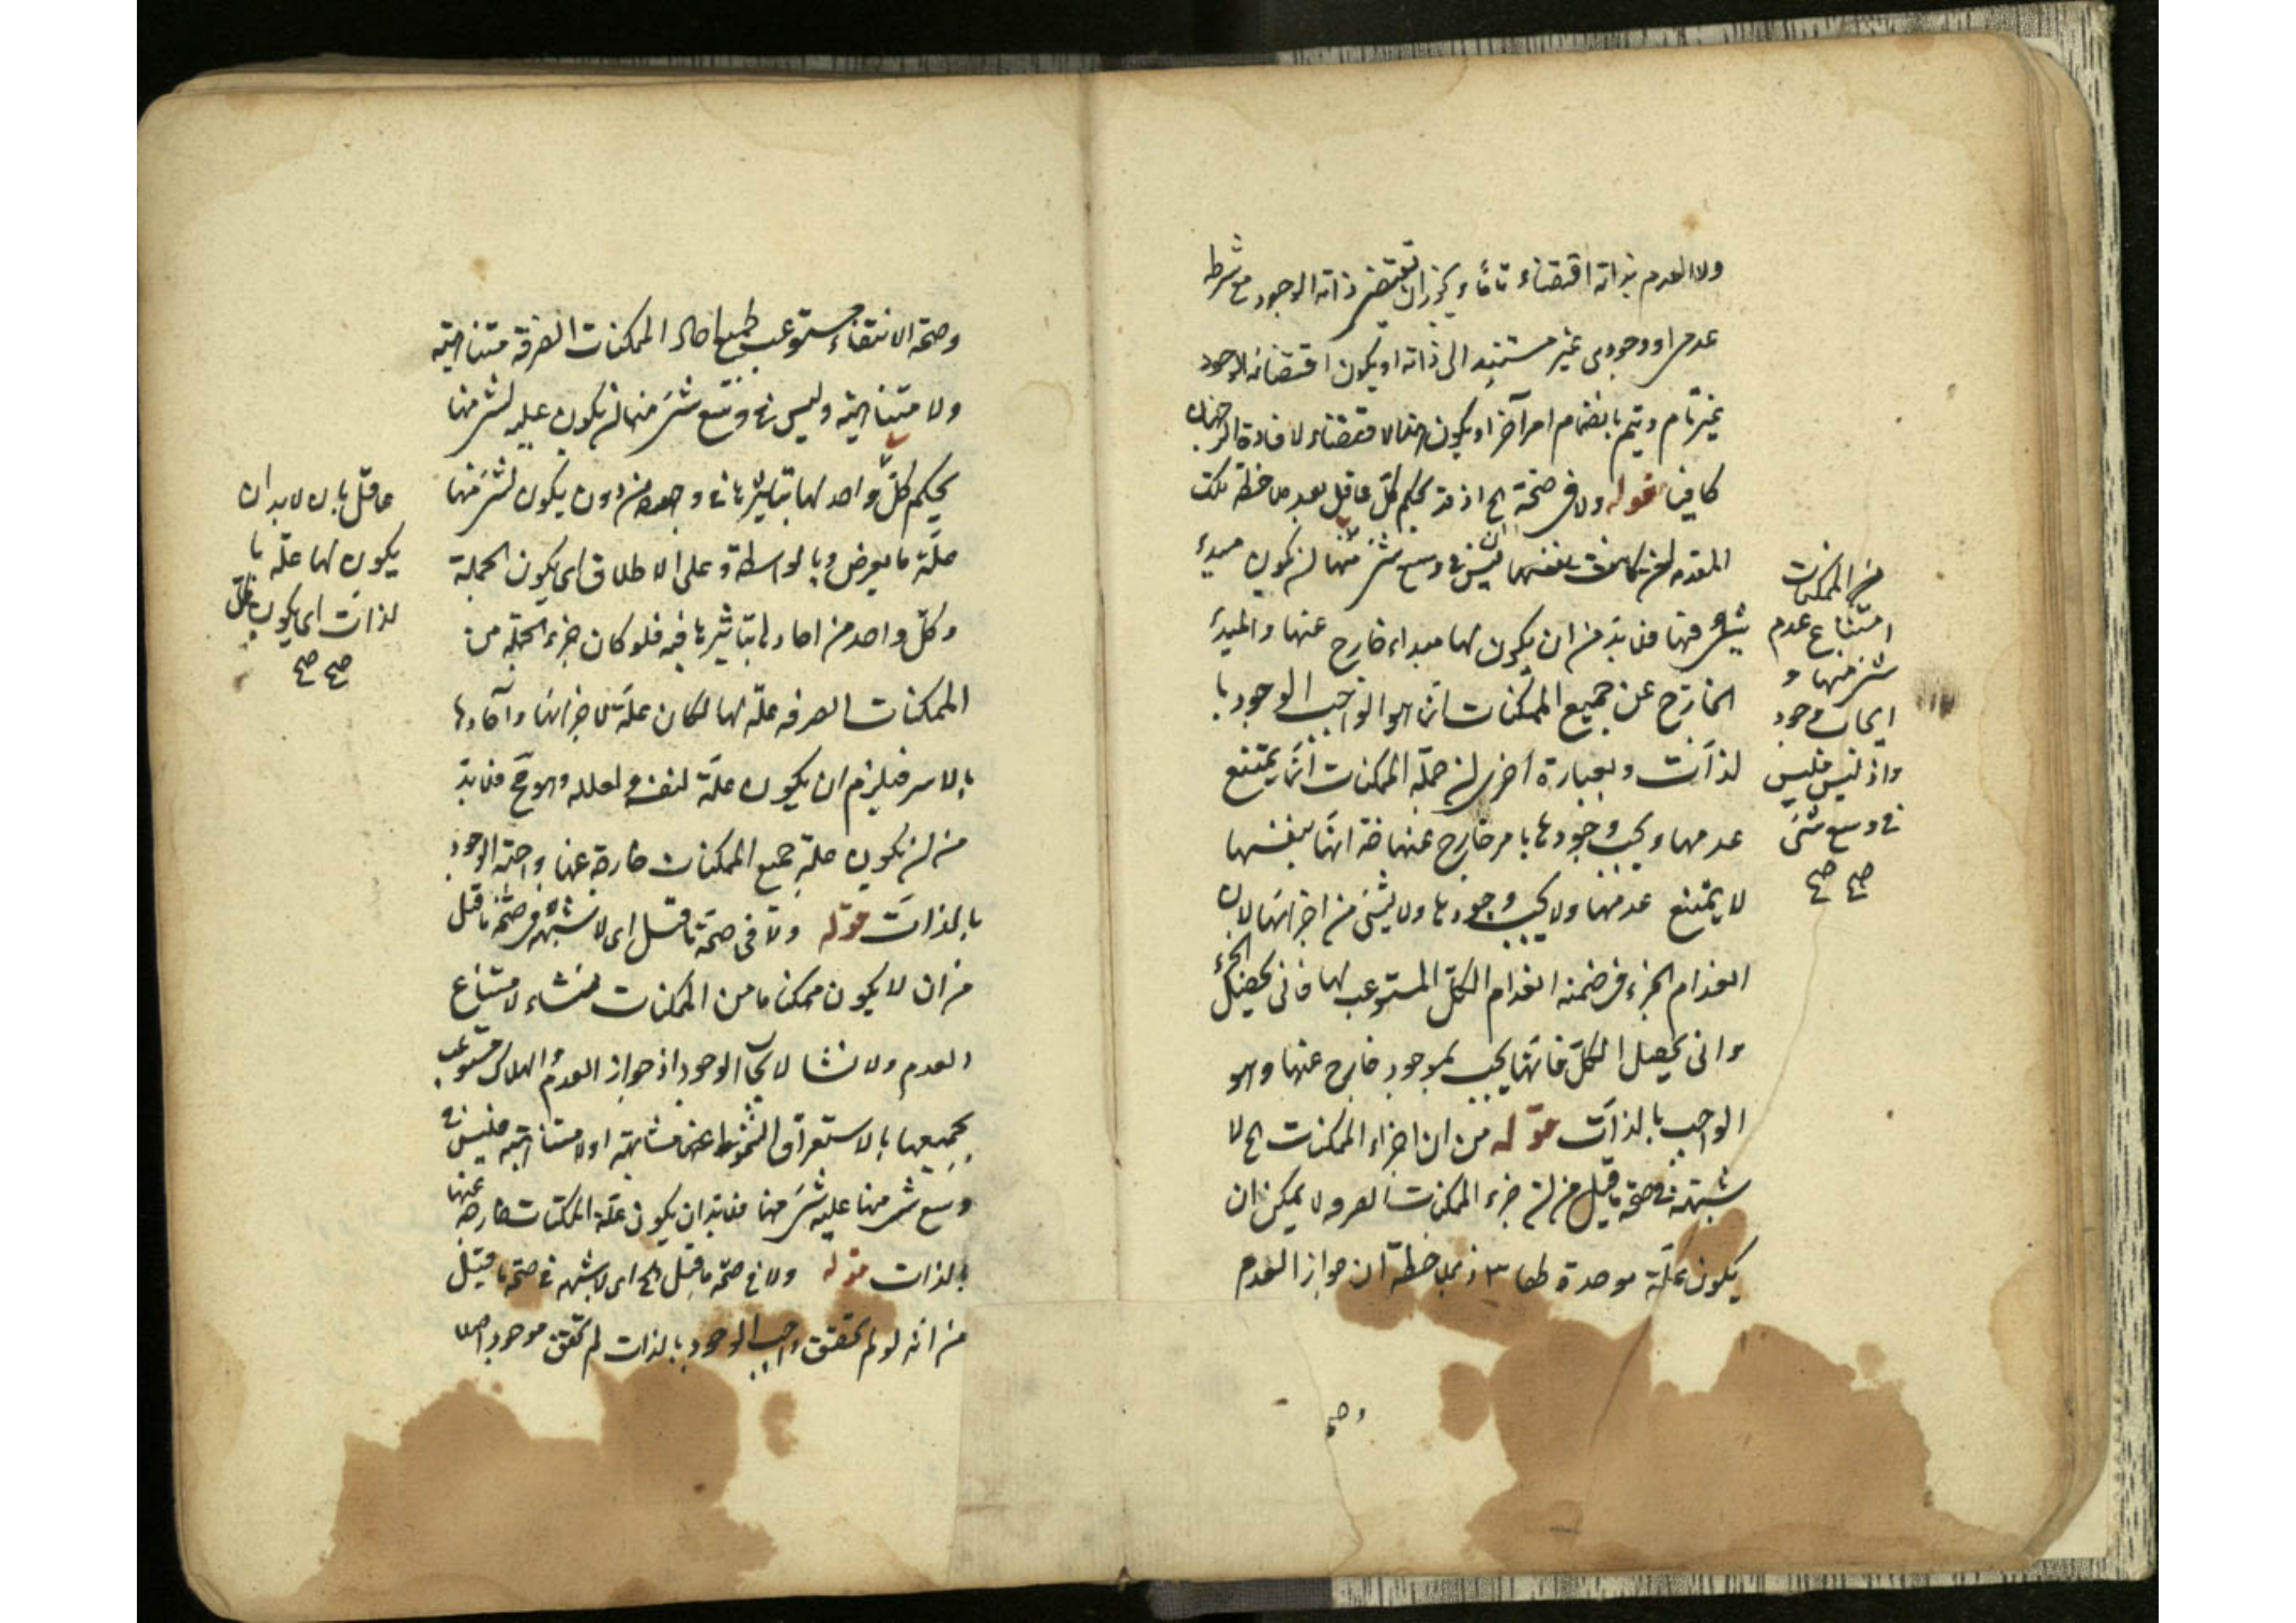 ولا العدم بذاته اقتضاء تاما ويجوز ان تقتضى ذاته الوجود مع شرط
عدمى او وجودى غير مستند الى ذاته او يكون اقتضائه الوجود
غير تام ويتم بانضمام امر آخر او يكون الاقتضاء لافادة الرجحان
كافيا قوله ولا فى صحة الخ اذ قد يحكم كل عاقل بعد ملاحظة تلك
المقدمة ليس فى وسع شئ منها ان يكون مبدء
شئ منها فلا بد من ان يكون لها مبداء خارج عنها والمبدء
الخارج عن جميع الممكنات انما هو الواجب الوجود با
لذات وبعبارة اخرى ان جملة الممكنات انما يمتنع
عدمها ويجب وجودها بامر خارج عنها فانها بنفسها
لا يمتنع عدمها ولا يجب وجودها ولا بشئ من اجزائها لان
انعدام الجزء فى ضمنه انعدام الكل المستوعب لها فانى يحصل الجزء
وانى يحصل الكل فانها يجب بموجود خارج عنها وهو
الواجب بالذات قوله من ان اجزاء الممكنات الخ لا
شبهة فى صحة ما قيل من ان جزء الممكنات الصرفه لا يمكن ان
يكون علة موحدة لها اذ بملاحظة ان جواز العدم
من الممكنات
امتناع عدم
شئ منها و
ايجاب وجود
واذ ليس فليس
فى وسع شئ
صح صح
وصح
وصحة الانتفاء مستوعب لجميع احاد الممكنات الصرفة متناهية
ولا متناهية وليس فى وسع شئ منها ان يكون علية لشئ منها
يحكم كل واحد لها بتاثيرها فى وجوده من دون يكون لشئ منها
علة ما بالعرض وبالواسطة وعلى الاطلاق اى يكون الجملة
وكل واحد من احادها بتاثيرها فيه فلو كان جزء الجملة من
الممكنات الصرفه علة لها لكان علة لاجزائها وآحادها
بالاسر فيلزم ان يكون علة لنفسه ولعلله وهو مح فلا بد
من ان يكون علة جميع الممكنات خارجة عنها واجبة الوجود
بالذات قوله ولا فى صحة ما قيل اى لا شبهة فى صحة ما قيل
من ان لا يكون ممكن ما من الممكنات منشاء لامتناع
العدم ولا منشا لايجاب الوجود اذ جواز العدم والهلاك مستوعب
بجميعها بالاستغراق الشمولى متناهية او لا متناهية فليس فى
وسع شئ منها علية شئ منها فلا بد ان يكون علة الممكنات خارجة عنها
بالذات قوله ولا فى صحة ما قيل الخ اى لا شبهة فى صحة ما قيل
من انه لو لم يتحقق واجب الوجود بالذات لم يتحقق موجود اصلا
عاقل بان لا بد ان
يكون لها علة با
لذات اى يكون
صح صح